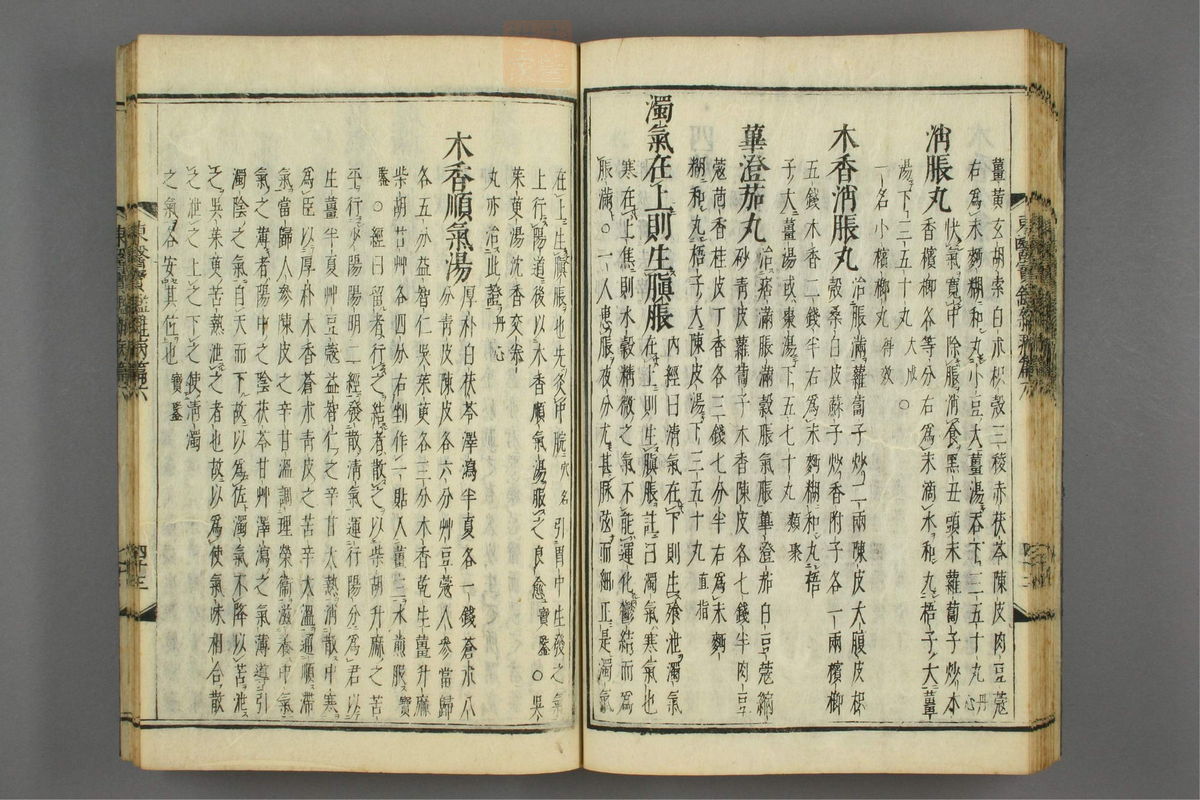 薑黃玄胡索白朮枳殼三稜赤茯苓陳皮肉豆蔻
右爲末麪糊和丸小豆大薑湯呑下三五十丸丹心
消脹丸快氣寬中除脹消食黑丑頭末蘿蔔子炒木
香檳榔各等分右爲末滴水和丸梧子大薑
湯下三五十丸大成○
一名小檳榔丸丹效
木香消脹丸治脹滿蘿蔔子炒二兩陳皮大腹皮枳
殼桑白皮蘇子炒香附子各一兩檳榔
五錢木香二錢半右爲末麪糊和丸梧
子大薑湯或棗湯下五七十丸類聚
蓽澄茄丸治痞滿脹滿穀脹氣脹蓽澄茄白豆蔻縮
砂靑皮蘿蔔子木香陳皮各七錢半肉豆
蔻茴香桂皮丁香各三錢七分半右爲末麪
糊和丸梧子大陳皮湯下三五十丸直指
濁氣在上則生䐜脹內經曰淸氣在下則生飱泄濁氣
在上則生䐜脹註曰濁氣寒氣也
寒在上焦則水穀精微之氣不能運化鬱結而爲
脹滿○一人患脹夜分尤甚脉弦而細正是濁氣
在上生䐜脹也先灸中脘穴名引胃中生發之氣
上行陽道後以木香順氣湯服之良愈寶鑑○吳
茱萸湯沈香交泰
丸亦治此證丹心
木香順氣湯厚朴白茯苓澤瀉半夏各一錢蒼朮八
分靑皮陳皮各六分艸豆蔻人參當歸
各五分益智仁吳茱萸各三分木香乾生薑升麻
柴胡甘艸各四分右剉作一貼入薑三水煎服寶
鑑○經曰留者行之結者散之以柴胡升麻之苦
平行少陽陽明二經發散淸氣運行陽分爲君以
生薑半夏艸豆蔻益智仁之辛甘大熱消散中寒
爲臣以厚朴木香蒼朮靑皮之苦辛大溫通順滯
氣當歸人參陳皮之辛甘溫調理榮衛滋養中氣
氣之薄者陽中之陰茯苓甘艸澤瀉之氣薄導引
濁陰之氣自天而下故以爲佐濁氣不降以苦泄
之吳茱萸苦熱泄之者也故以爲使氣味相合散
之泄之上之下之使淸濁
之氣各安其位也寶鑑
東醫寶鑑雜病篇六
東醫寶鑑雜病篇六
四十三